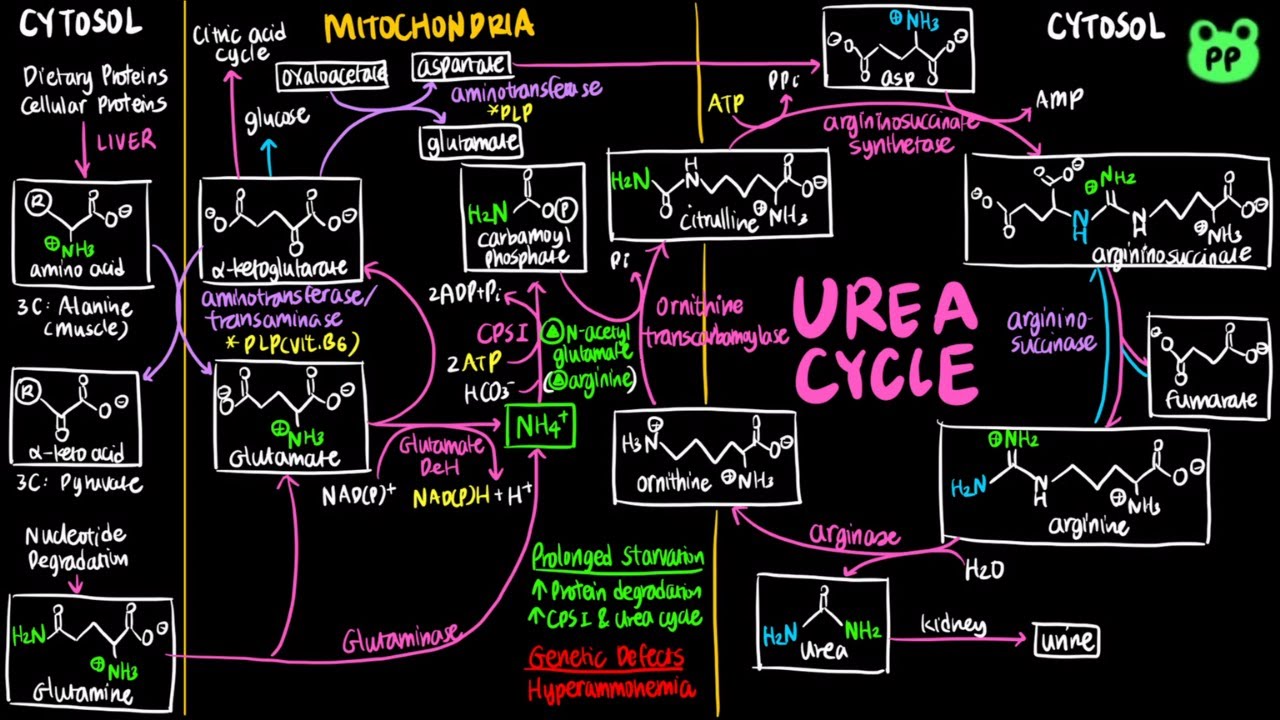 CYTOSOL
Dietary Proteins
Cellular Proteins
LIVER
R
O
O⊖
⊕NH3
amino acid
3C: Alanine
(muscle)
R
O
O
O⊖
α-keto acid
3C: Pyruvate
Nucleotide
Degradation
H2N
O
O
O⊖
⊕NH3
Glutamine
MITOCHONDRIA
Citric acid
cycle
glucose
oxaloacetate
aspartate
aminotransferase
*PLP
glutamate
⊖O
O
O
O
O⊖
α-ketoglutarate
aminotransferase/
transaminase
* PLP(Vit.B6)
⊖O
O
O
O⊖
⊕NH3
Glutamate
Glutamate
DeH
NAD(P)+
NAD(P)H + H+
Glutaminase
O
H2N
O
P
carbamoyl
phosphate
2ADP+Pi
CPS I
2 ATP
HCO3-
N-acetyl
glutamate
(arginine)
NH4+
Pi
Ornithine
transcarbamoylase
H2N
O
N
H
O
O⊖
⊕NH3
citrulline
H3N
⊕
O
O⊖
ornithine
⊕NH3
Prolonged Starvation
↑ Protein degradation
↑ CPS I & urea cycle
Genetic Defects
Hyperammonemia
CYTOSOL
PP
⊕NH3
⊖O
O
O
O⊖
asp
ATP
PPi
AMP
argininosuccinate
synthetase
O
O⊖
⊖O
O
⊕NH2
N
H
N
H
O
O⊖
⊕NH3
argininosuccinate
UREA
CYCLE
arginino-
succinase
O⊖
O
O
O⊖
fumarate
⊕NH2
H2N
N
H
O
O⊖
⊕NH3
arginine
arginase
H2O
O
H2N
NH2
urea
kidney
urine